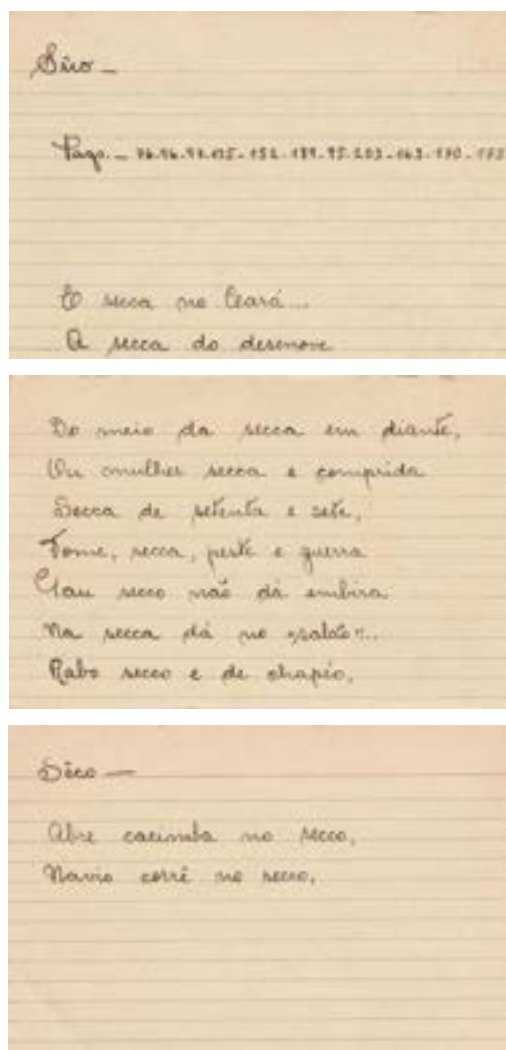 Sêco _
Pags. _ 76.96.97.135-152-189.95.203-163-170-175
E secca no Ceará...
A secca do desenove
Do meio da secca em diante,
Ou mulher secca e comprida
Secca de setenta e sete,
Fome, secca, peste e guerra
Pau secco não dá embira
Na secca dá no "salão"..
Rabo secco e de chapéo,
Sêco —
Abre cacimba no secco,
Navio corrê no secco,